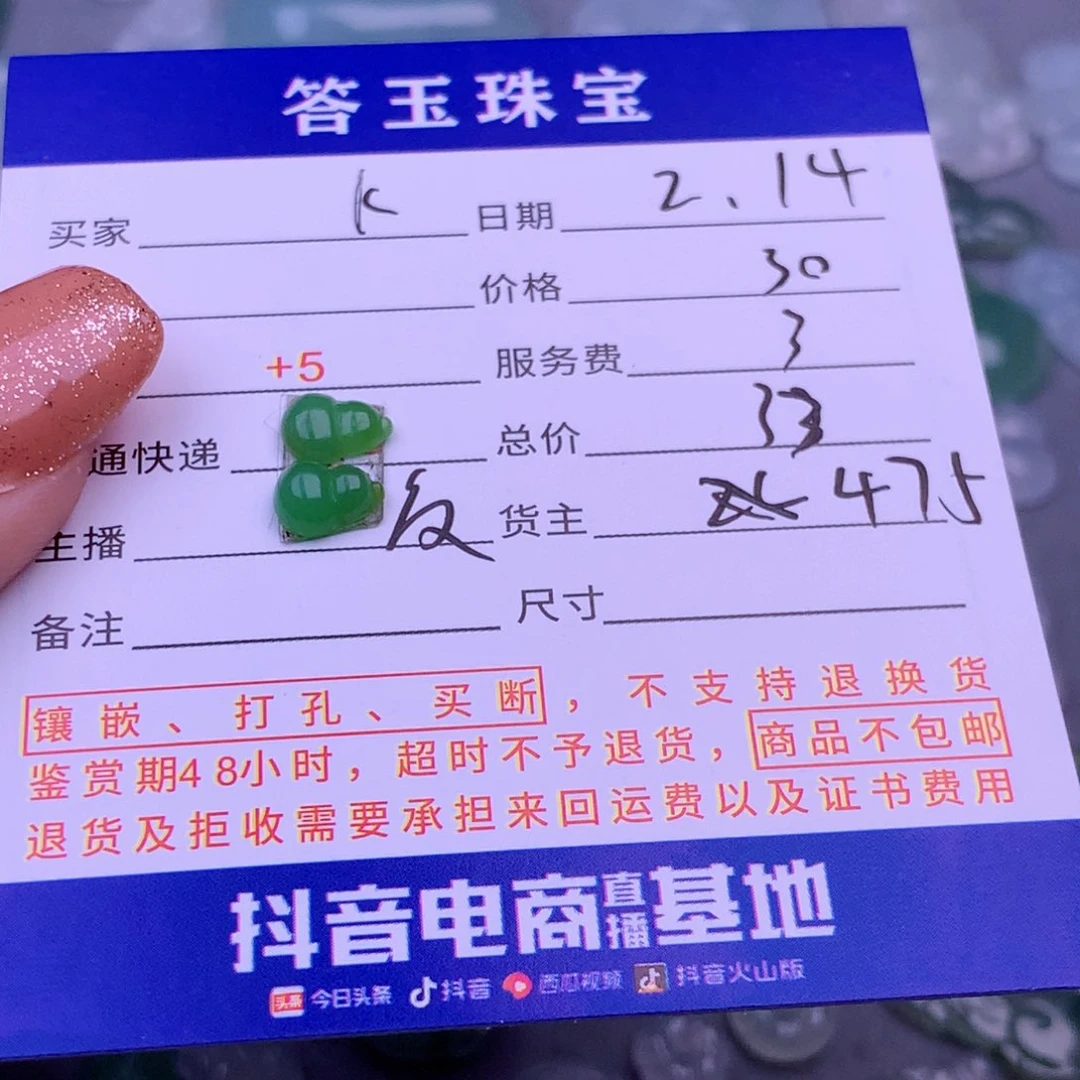 答玉珠宝
买家 K 日期 2.14
价格 30
+5 服务费 3
通快递 总价 33
主播 货主 475
备注 尺寸
镶嵌、打孔、买断，不支持退换货
鉴赏期48小时，超时不予退货，商品不包邮
退货及拒收需要承担来回运费以及证书费用
抖音电商直播基地
头条 今日头条 抖音 西瓜视频 抖音火山版